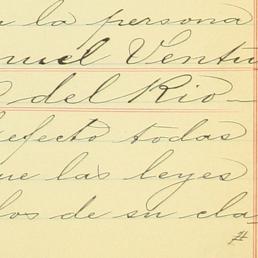 la persona
uel Ventu
del Rio-
efecto todas
ue las leyes
los de su cla-